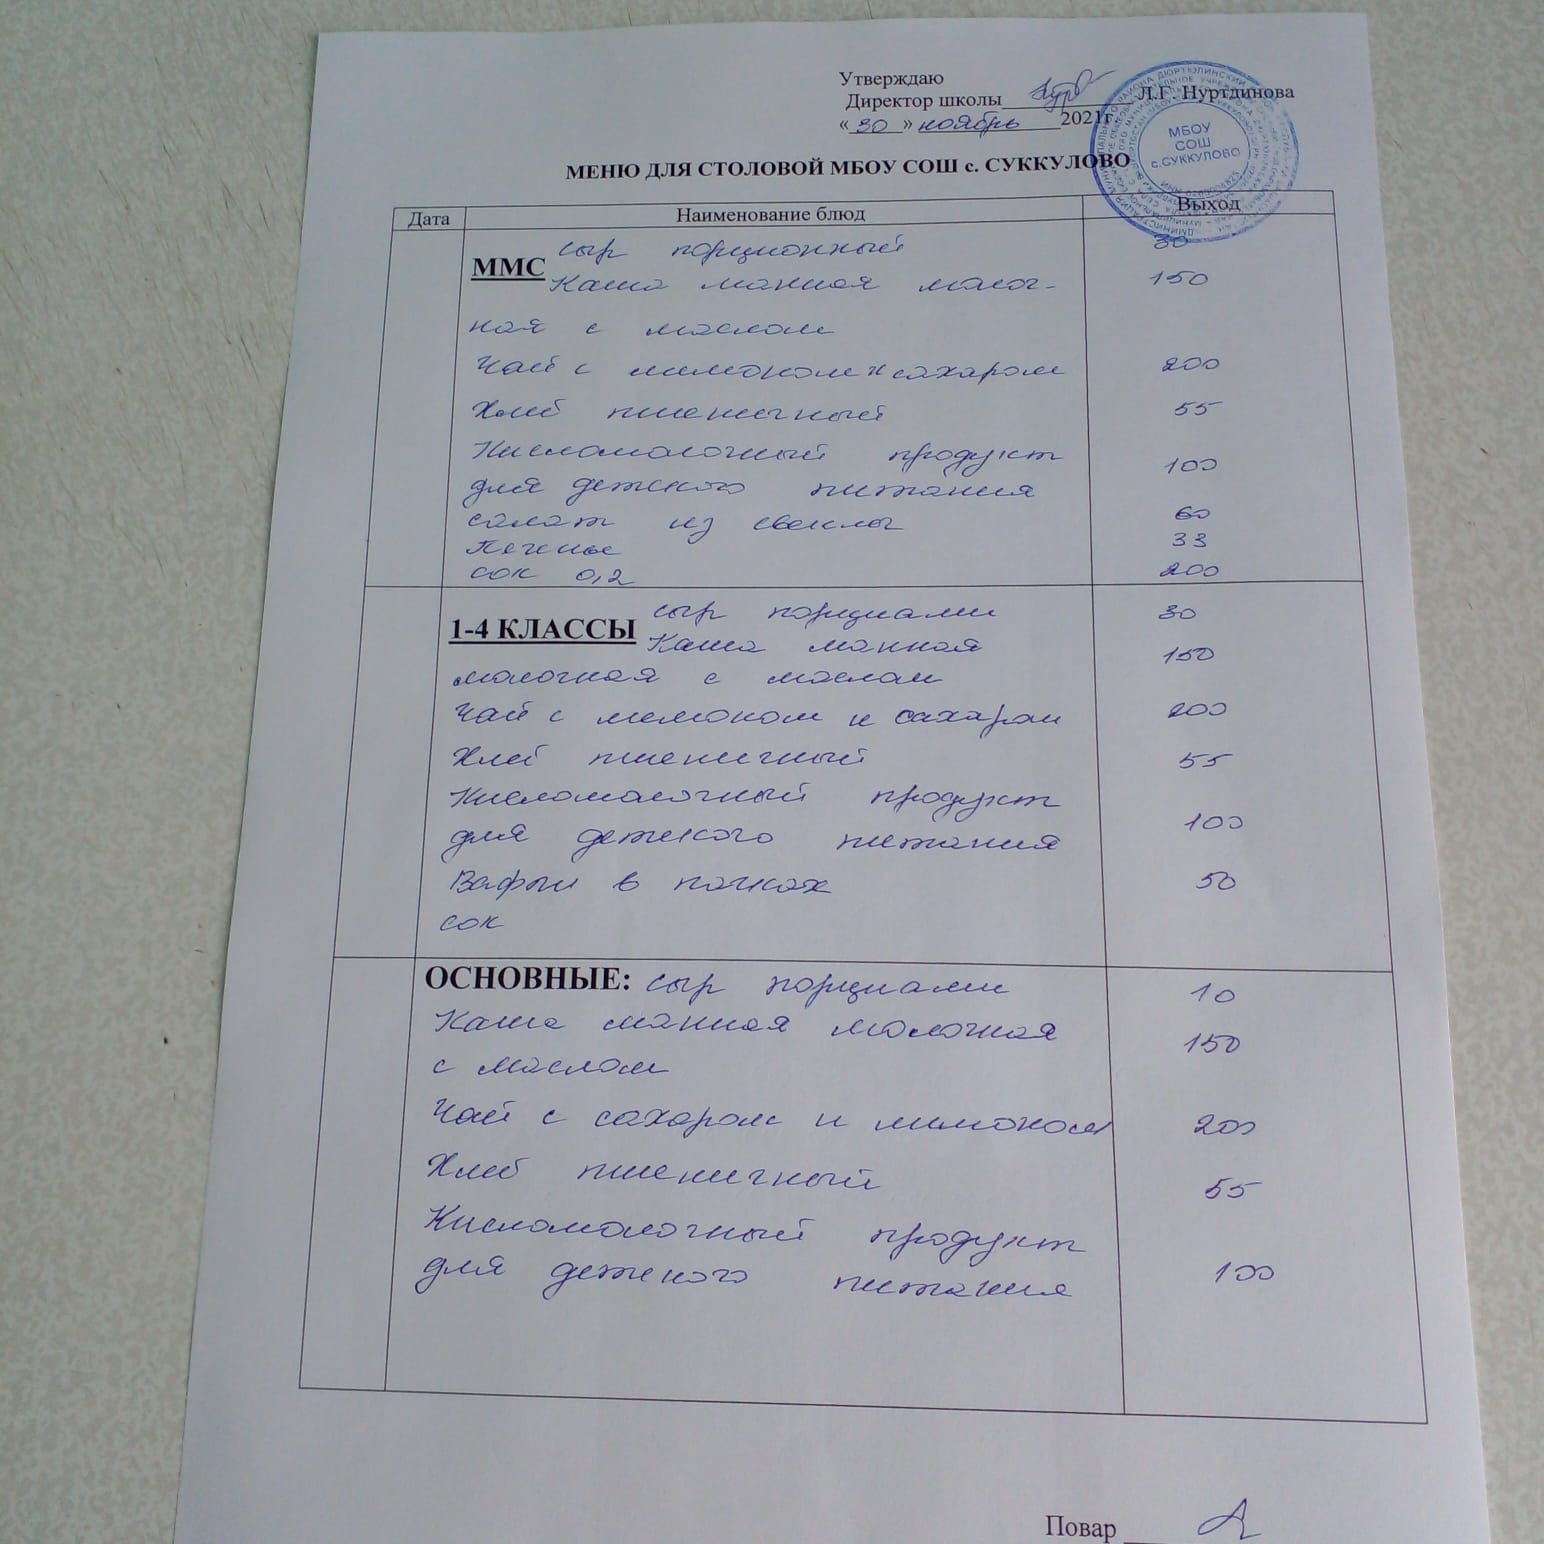 Утверждаю
Директор школы Л.Г. Нуртдинова
«30» ноябрь 2021г.
МБОУ
СОШ
с.СУККУЛОВО
МЕНЮ ДЛЯ СТОЛОВОЙ МБОУ СОШ с. СУККУЛОВО
Дата Наименование блюд Выход
ММС сыр порционный 30
Каша манная молоч- 150
ная с маслом
Чай с лимоном и сахаром 200
Хлеб пшеничный 55
Кисломолочный продукт
для детского питания 100
салат из свеклы 60
Печенье 33
сок 0,2 200
1-4 КЛАССЫ сыр порциями 30
Каша манная 150
молочная с маслом
Чай с лимоном и сахаром 200
Хлеб пшеничный 55
Кисломолочный продукт
для детского питания 100
Вафли в пачках 50
сок
ОСНОВНЫЕ: сыр порциями 10
Каша манная молочная 150
с маслом
Чай с сахаром и лимоном 200
Хлеб пшеничный 55
Кисломолочный продукт
для детского питания 100
Повар